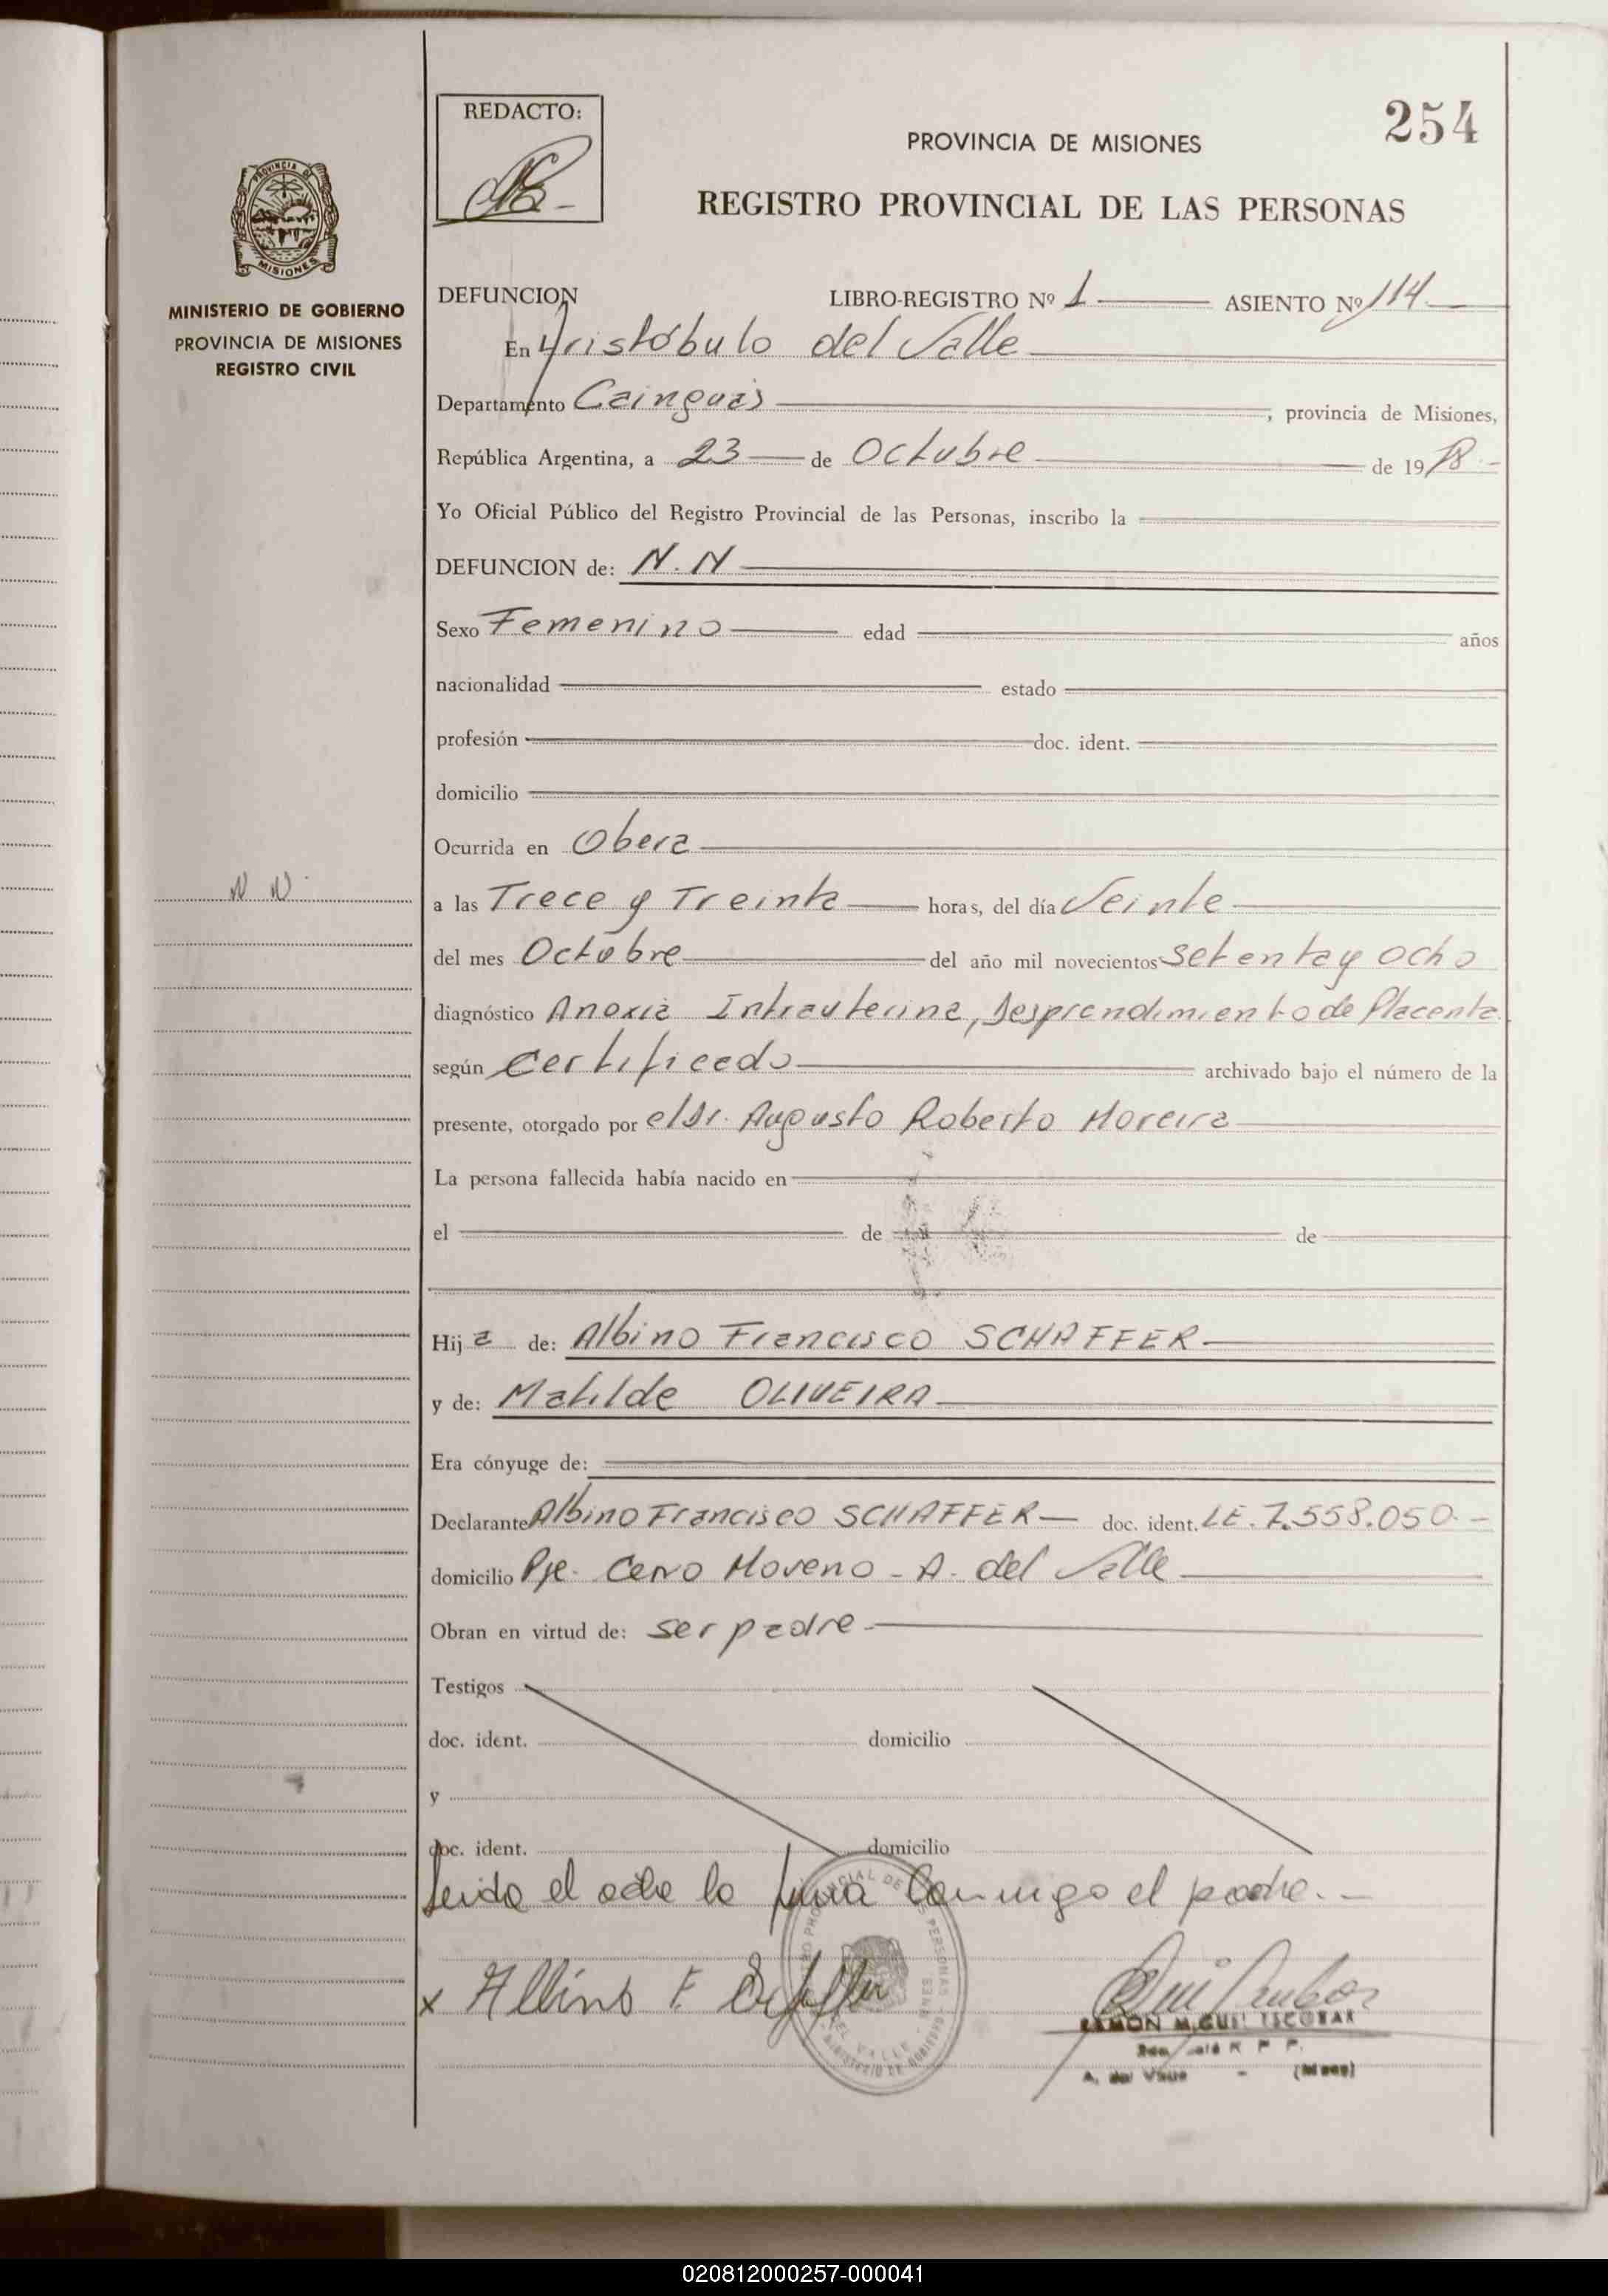 254
REDACTO:
PROVINCIA DE MISIONES
REGISTRO PROVINCIAL DE LAS PERSONAS
PROVINCIA DE
MISIONES
MINISTERIO DE GOBIERNO
PROVINCIA DE MISIONES
REGISTRO CIVIL
DEFUNCION LIBRO-REGISTRO Nº 1 ASIENTO Nº 114
En Aristóbulo del Valle
Departamento Cainguás, provincia de Misiones,
República Argentina, a 23 de Octubre de 1978.-
Yo Oficial Público del Registro Provincial de las Personas, inscribo la
DEFUNCION de: N.N
Sexo Femenino edad años
nacionalidad estado
profesión doc. ident.
domicilio
Ocurrida en Obera
N N
a las Trece y Treinta horas, del día Veinte
del mes Octubre del año mil novecientos setenta y ocho
diagnóstico Anoxia Intrauterina, Desprendimiento de Placenta
según certificado archivado bajo el número de la
presente, otorgado por el Dr. Augusto Roberto Moreira
La persona fallecida había nacido en
el de de
Hija de: Albino Francisco SCHAFFER
y de: Matilde OLIVEIRA
Era cónyuge de:
Declarante Albino Francisco SCHAFFER doc. ident. LE. 7.558.050.-
domicilio Pje. Cerro Moreno - A. del Valle
Obran en virtud de: ser padre
Testigos
doc. ident. domicilio
y
doc. ident. domicilio
Leida el acta la firma conmigo el padre.-
x Albino F.
RAMON MIGUEL ESCOBAR
R P P.
A. del Valle - (Mnes)
020812000257-000041